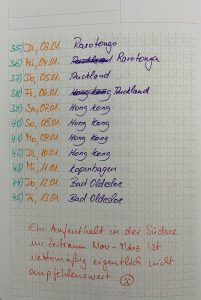 35) Di, 03.01. Rarotonga
36) Mi, 04.01. Auckland Rarotonga
37) Do, 05.01. Auckland
38) Fr, 06.01. Hong Kong Auckland
39) Sa, 07.01. Hong Kong
40) So, 08.01. Hong Kong
41) Mo, 09.01. Hong Kong
42) Di, 10.01. Hong Kong
43) Mi, 11.01. Kopenhagen
44) Do, 12.01. Bad Oldesloe
45) Fr, 13.01. Bad Oldesloe
Ein Aufenthalt in der Südsee
im Zeitraum Nov - März ist
wettermäßig eigentlich nicht
empfehlenswert